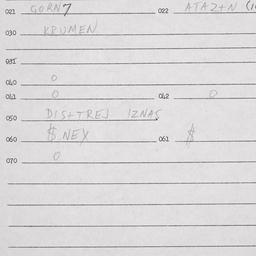 021 GORN7 022 ATAZ+N (1
030 KRUMEN
031
040 0
041 0 042 0
050 DIS+TREJ IZNAS
060 $ NEX 061 $
070 0